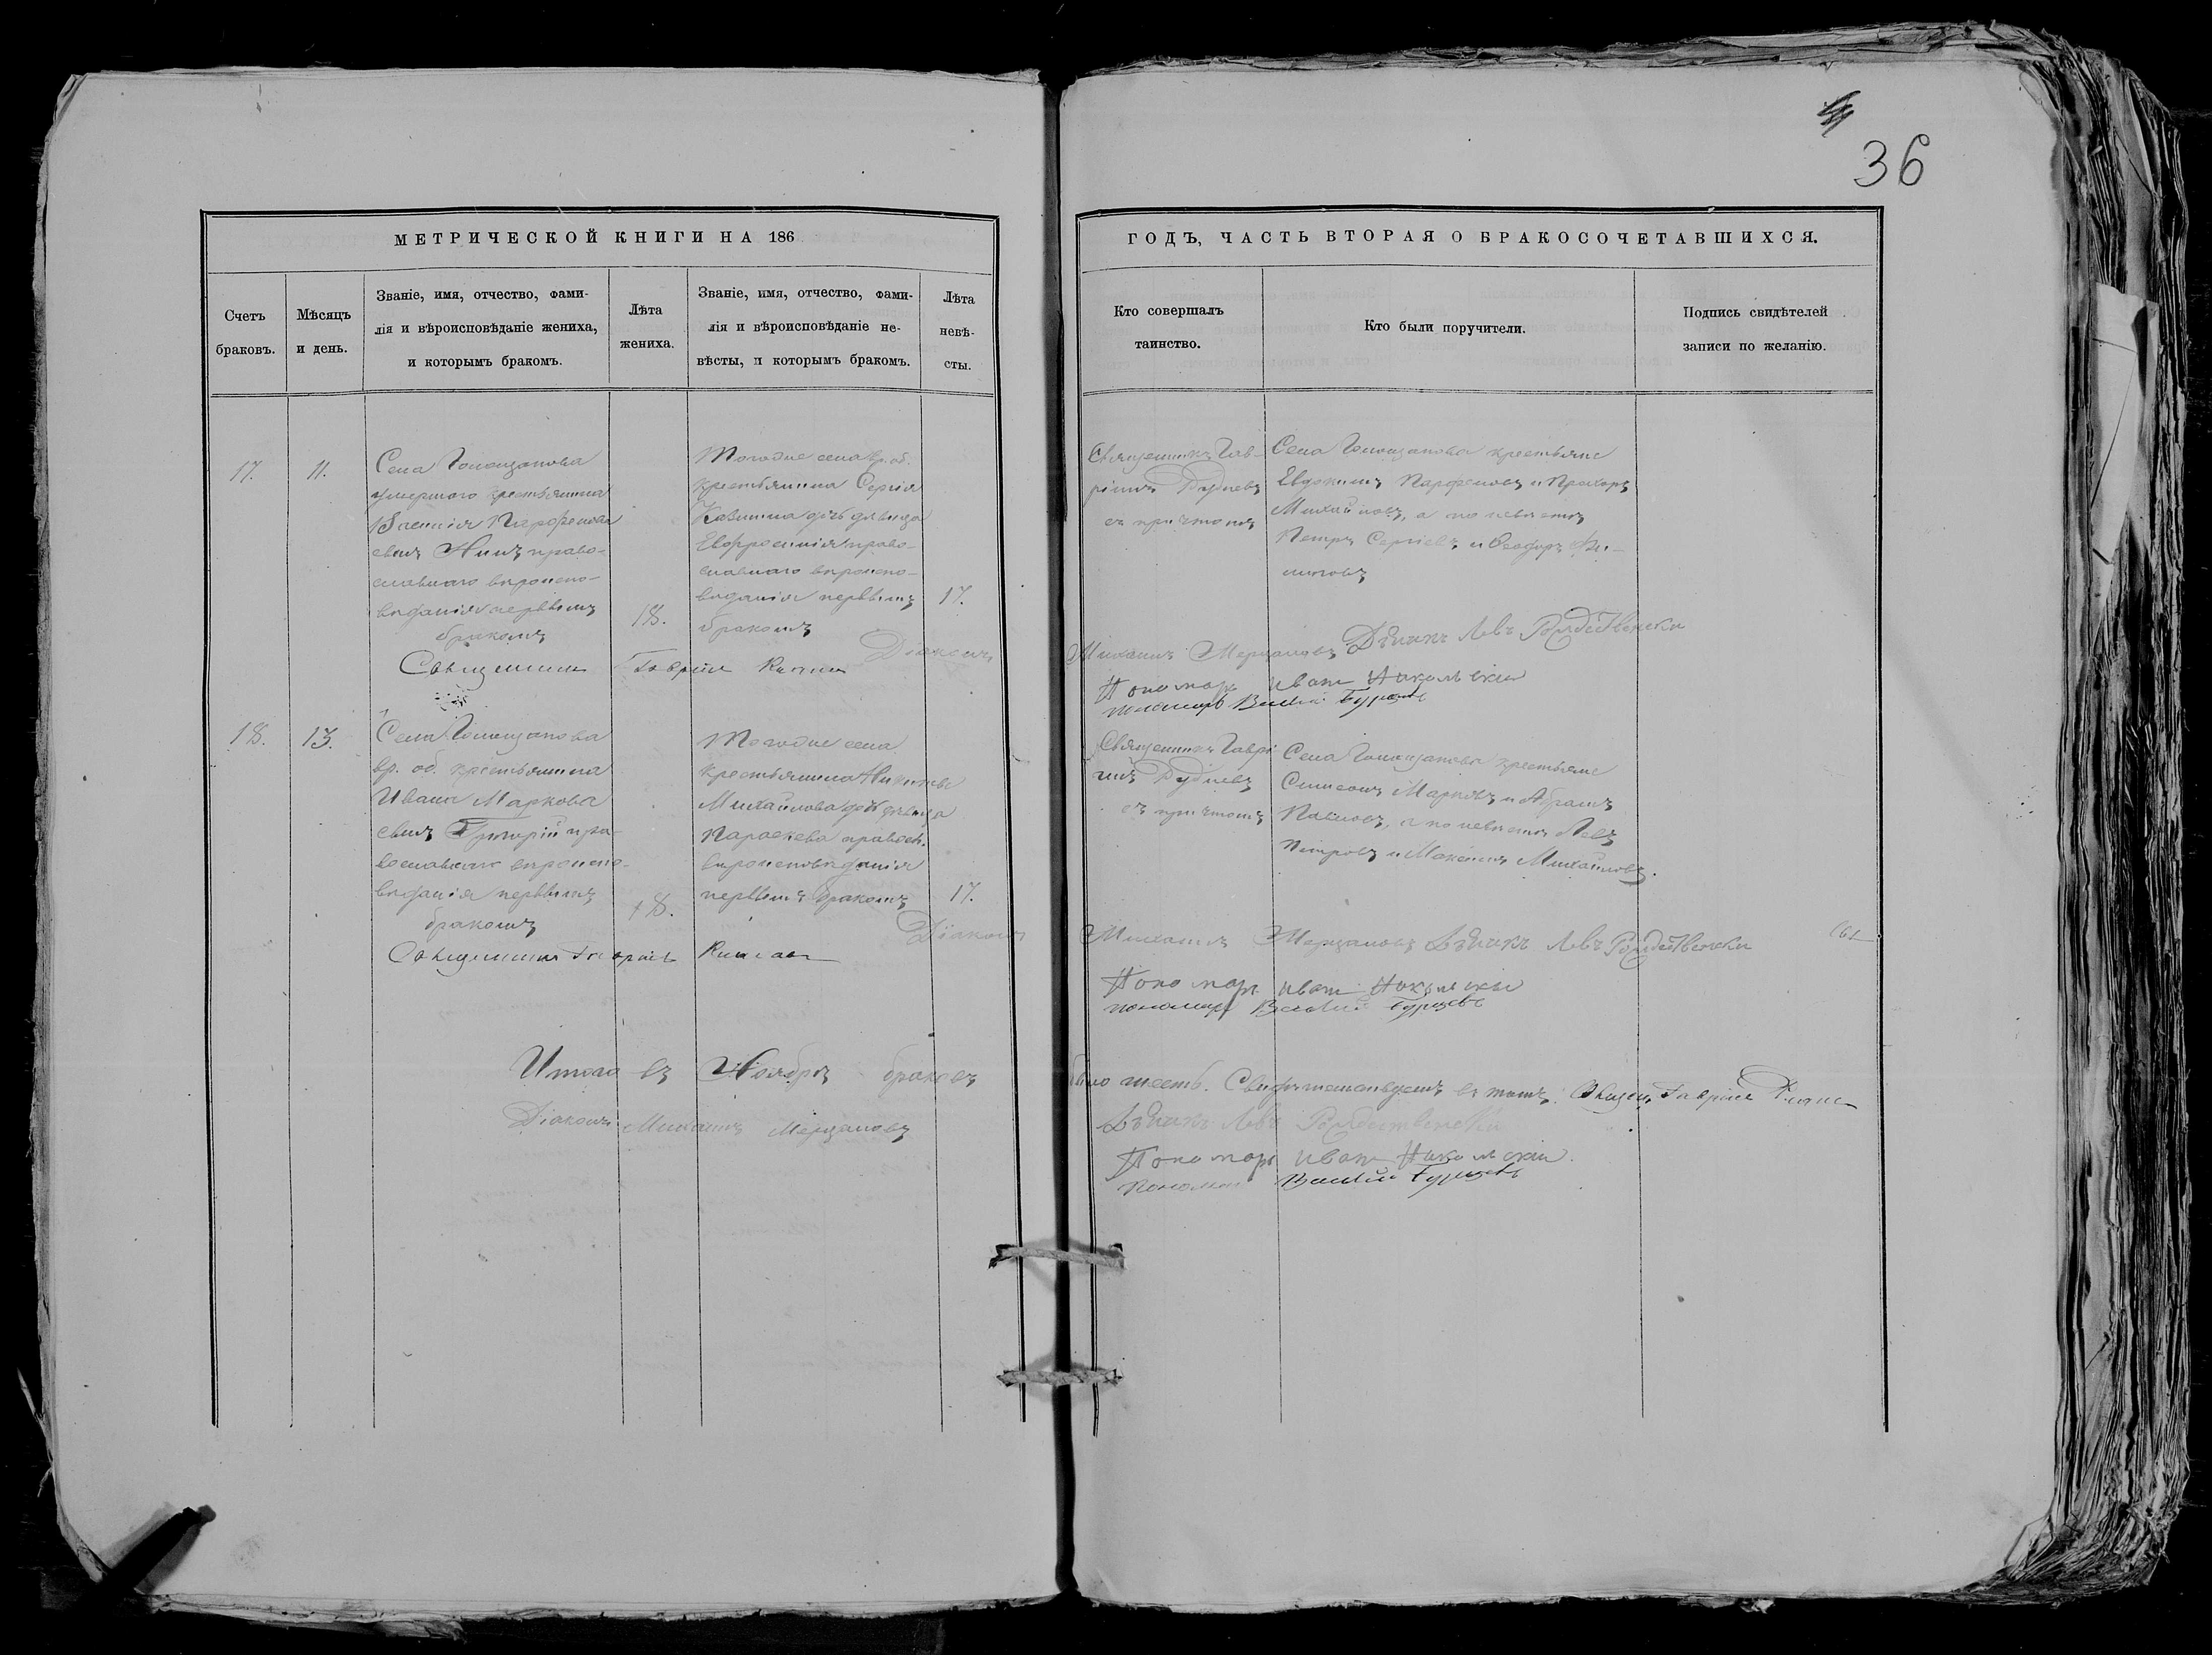 36
МЕТРИЧЕСКОЙ КНИГИ НА 186
Счетъ браковъ.
Мѣсяцъ и день.
Званіе, имя, отчество, фами-
лія и вѣроисповѣданіе жениха,
и которымъ бракомъ.
Лѣта жениха.
Званіе, имя, отчество, фами-
лія и вѣроисповѣданіе не-
вѣсты, и которымъ бракомъ.
Лѣта
невѣ-
сты.
17.
11.
Села
умершаго крестьянина
Парфенова
сынъ право-
славнаго вѣроиспо-
вѣданія первымъ
бракомъ
18.
Тогоже села вр. об.
крестьянина Сергія
дочь дѣвица
Евфросинія право-
славнаго вѣроиспо-
вѣданія первымъ
бракомъ
17.
Священникъ Гавріилъ
Діаконъ
18.
13.
Села
вр. об. крестьянина
Ивана Маркова
сынъ Григорій пра-
вославнаго вѣроиспо-
вѣданія первымъ
бракомъ
18.
Тогоже села
крестьянина Никиты
Михайлова дочь дѣвица
Параскева правосл.
вѣроисповѣданія
первымъ бракомъ
17.
Діаконъ
Священникъ Гавріилъ
Итого въ Ноябрѣ браковъ
Діаконъ Михаилъ Мерцаловъ
ГОДЪ, ЧАСТЬ ВТОРАЯ О БРАКОСОЧЕТАВШИХСЯ.
Кто совершалъ
таинство.
Кто были поручители.
Подпись свидѣтелей
записи по желанію.
Священникъ Гав-
ріилъ Рудневъ
съ причтомъ
Села крестьяне
Евдокимъ Парфеновъ и Прохоръ
Михайловъ, а по невѣстѣ
Петръ Сергіевъ и Ѳеодоръ Фи-
липовъ
Михаилъ Мерцаловъ Дьячекъ Левъ Рождественски
Пономарь Иванъ Никольскій
пономарь Василій Бурцевъ
Священникъ Гаврі-
илъ Рудневъ
съ причтомъ
Села крестьяне
Симеонъ Марковъ и Абрамъ
Павловъ, а по невѣстѣ Левъ
Петровъ и Максимъ Михайловъ.
Михаилъ Мерцаловъ Дьячекъ Левъ Рождественски
Пономарь Иванъ Никольскій
пономарь Василій Бурцевъ
было шесть. Свидѣтельствуемъ въ томъ: Священ. Гавріилъ
Дьячекъ Левъ Рождественски
Пономарь Иванъ Никольскій.
Пономарь Василій Бурцевъ